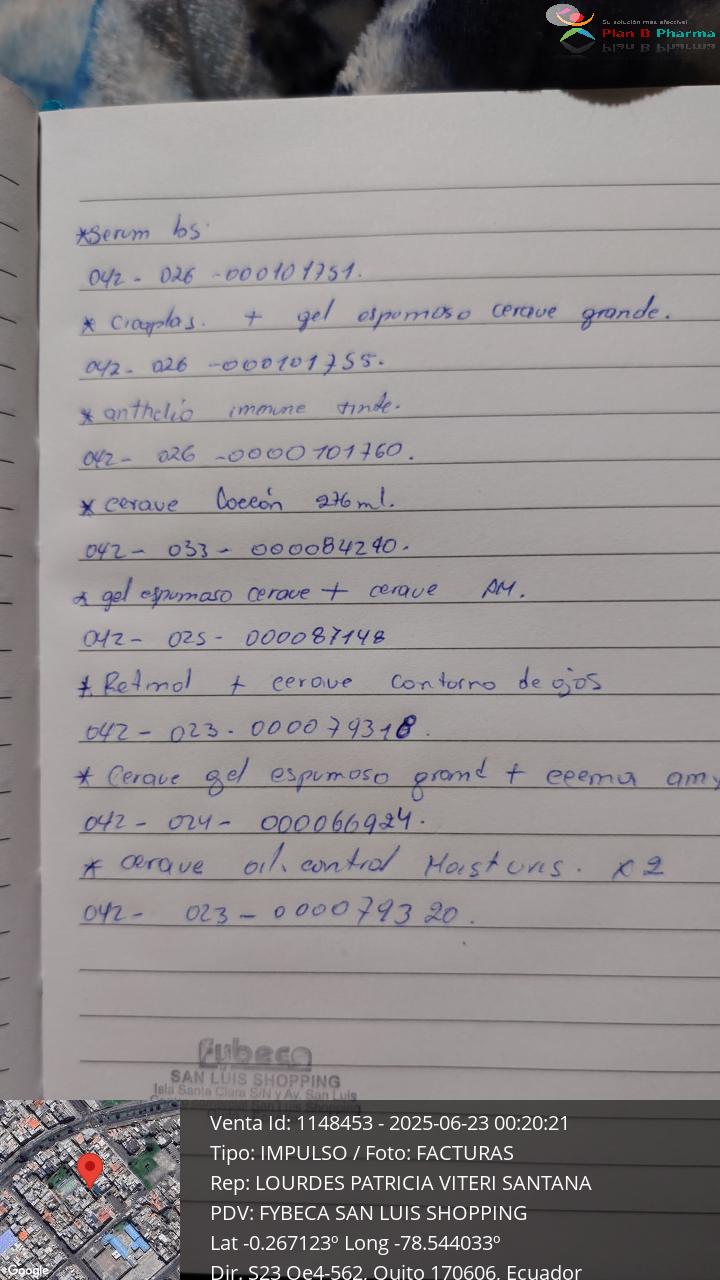 Su solución más efectiva!
Plan B Pharma
*Serum b5.
042 - 026 - 000101751.
* Cicaplas. + gel espumoso cerave grande.
042 - 026 - 000101755.
* anthelio immune tinde.
042 - 026 - 0000101760.
* cerave Locción 276ml.
042 - 033 - 000084240.
* gel espumoso cerave + cerave AM.
042 - 025 - 000087148
* Retinol + cerave contorno de ojos
042 - 023 - 000079318.
* Cerave gel espumoso grand + crema am
042 - 024 - 000066924.
* cerave oil control Moisturis. x2
042 - 023 - 000079320.
fybeca
SAN LUIS SHOPPING
Isla Santa Clara S/N y Av. San Luis
Venta Id: 1148453 - 2025-06-23 00:20:21
Tipo: IMPULSO / Foto: FACTURAS
Rep: LOURDES PATRICIA VITERI SANTANA
PDV: FYBECA SAN LUIS SHOPPING
Lat -0.267123º Long -78.544033º
Dir. S23 Oe4-562, Quito 170606, Ecuador
Google